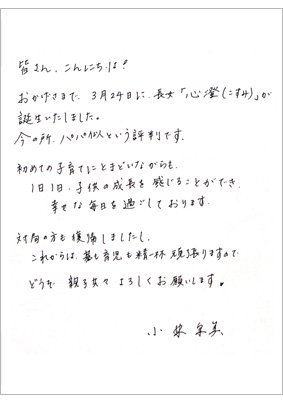 皆さん、こんにちは!
おかげさまで、3月24日に、長女「心澄(こすみ)」が
誕生いたしました。
今の所、パパ似という評判です。
初めての子育てにとまどいながらも、
1日1日、子供の成長を感じることができ、
幸せな毎日を過ごしております。
対局の方も復帰しましたし、
これからは、碁も育児も精一杯頑張りますので
どうぞ親子共々よろしくお願いします。
小林泉美